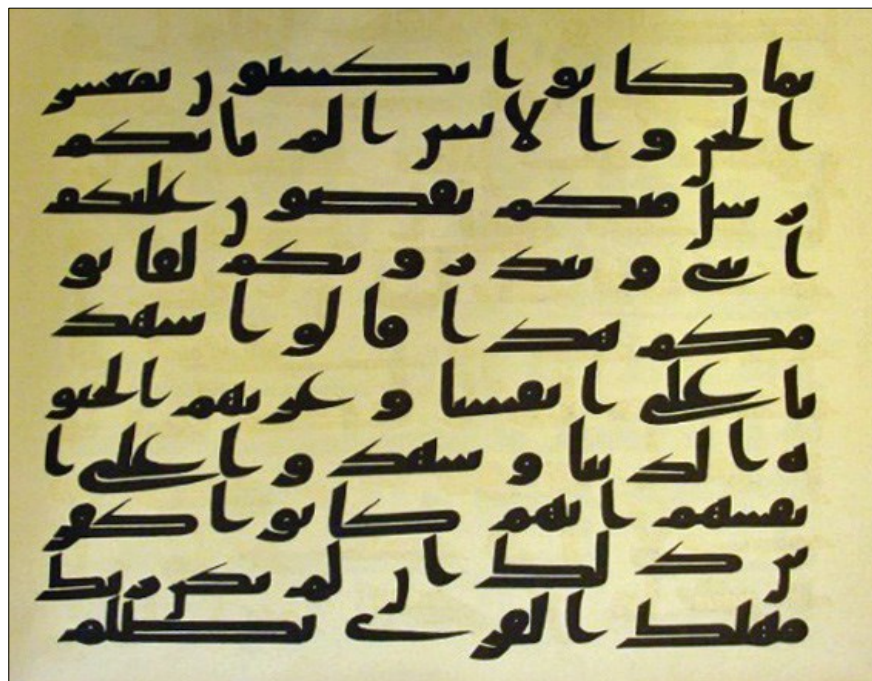 بما كانوا يكسبون يمعشر
الجن والانس الم ياتكم
رسل منكم يقصون عليكم
ايتي وينذرونكم لقا يو
مكم هذا قالوا شهد
نا على انفسنا وغرتهم الحيو
ة الدنيا وشهدوا على ا
نفسهم انهم كانوا كفر
ين ذلك ان لم يكن ربك
مهلك القرى بظلم